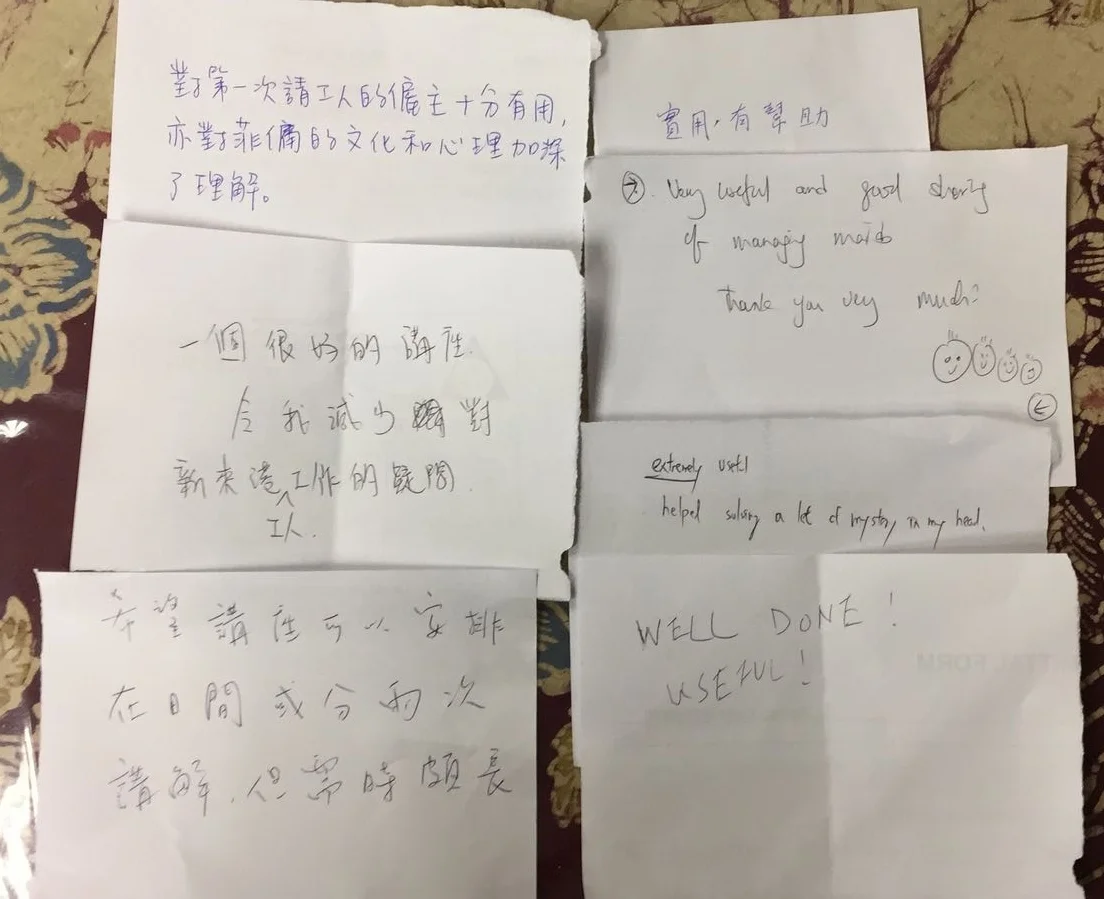 對於第一次請工人的僱主十分有用,
亦對於菲傭的文化和心理加深
了理解。
一個很好的講座.
令我減少對
新來港工作的疑問.
工人.
希望講座可以安排
在日間或分兩次
講解,但需時頗長
實用,有幫助
→. Very useful and good sharing
of managing maids
thank you very much!
←
extremely useful
helped solving a lot of mystery in my head.
WELL DONE!
USEFUL!